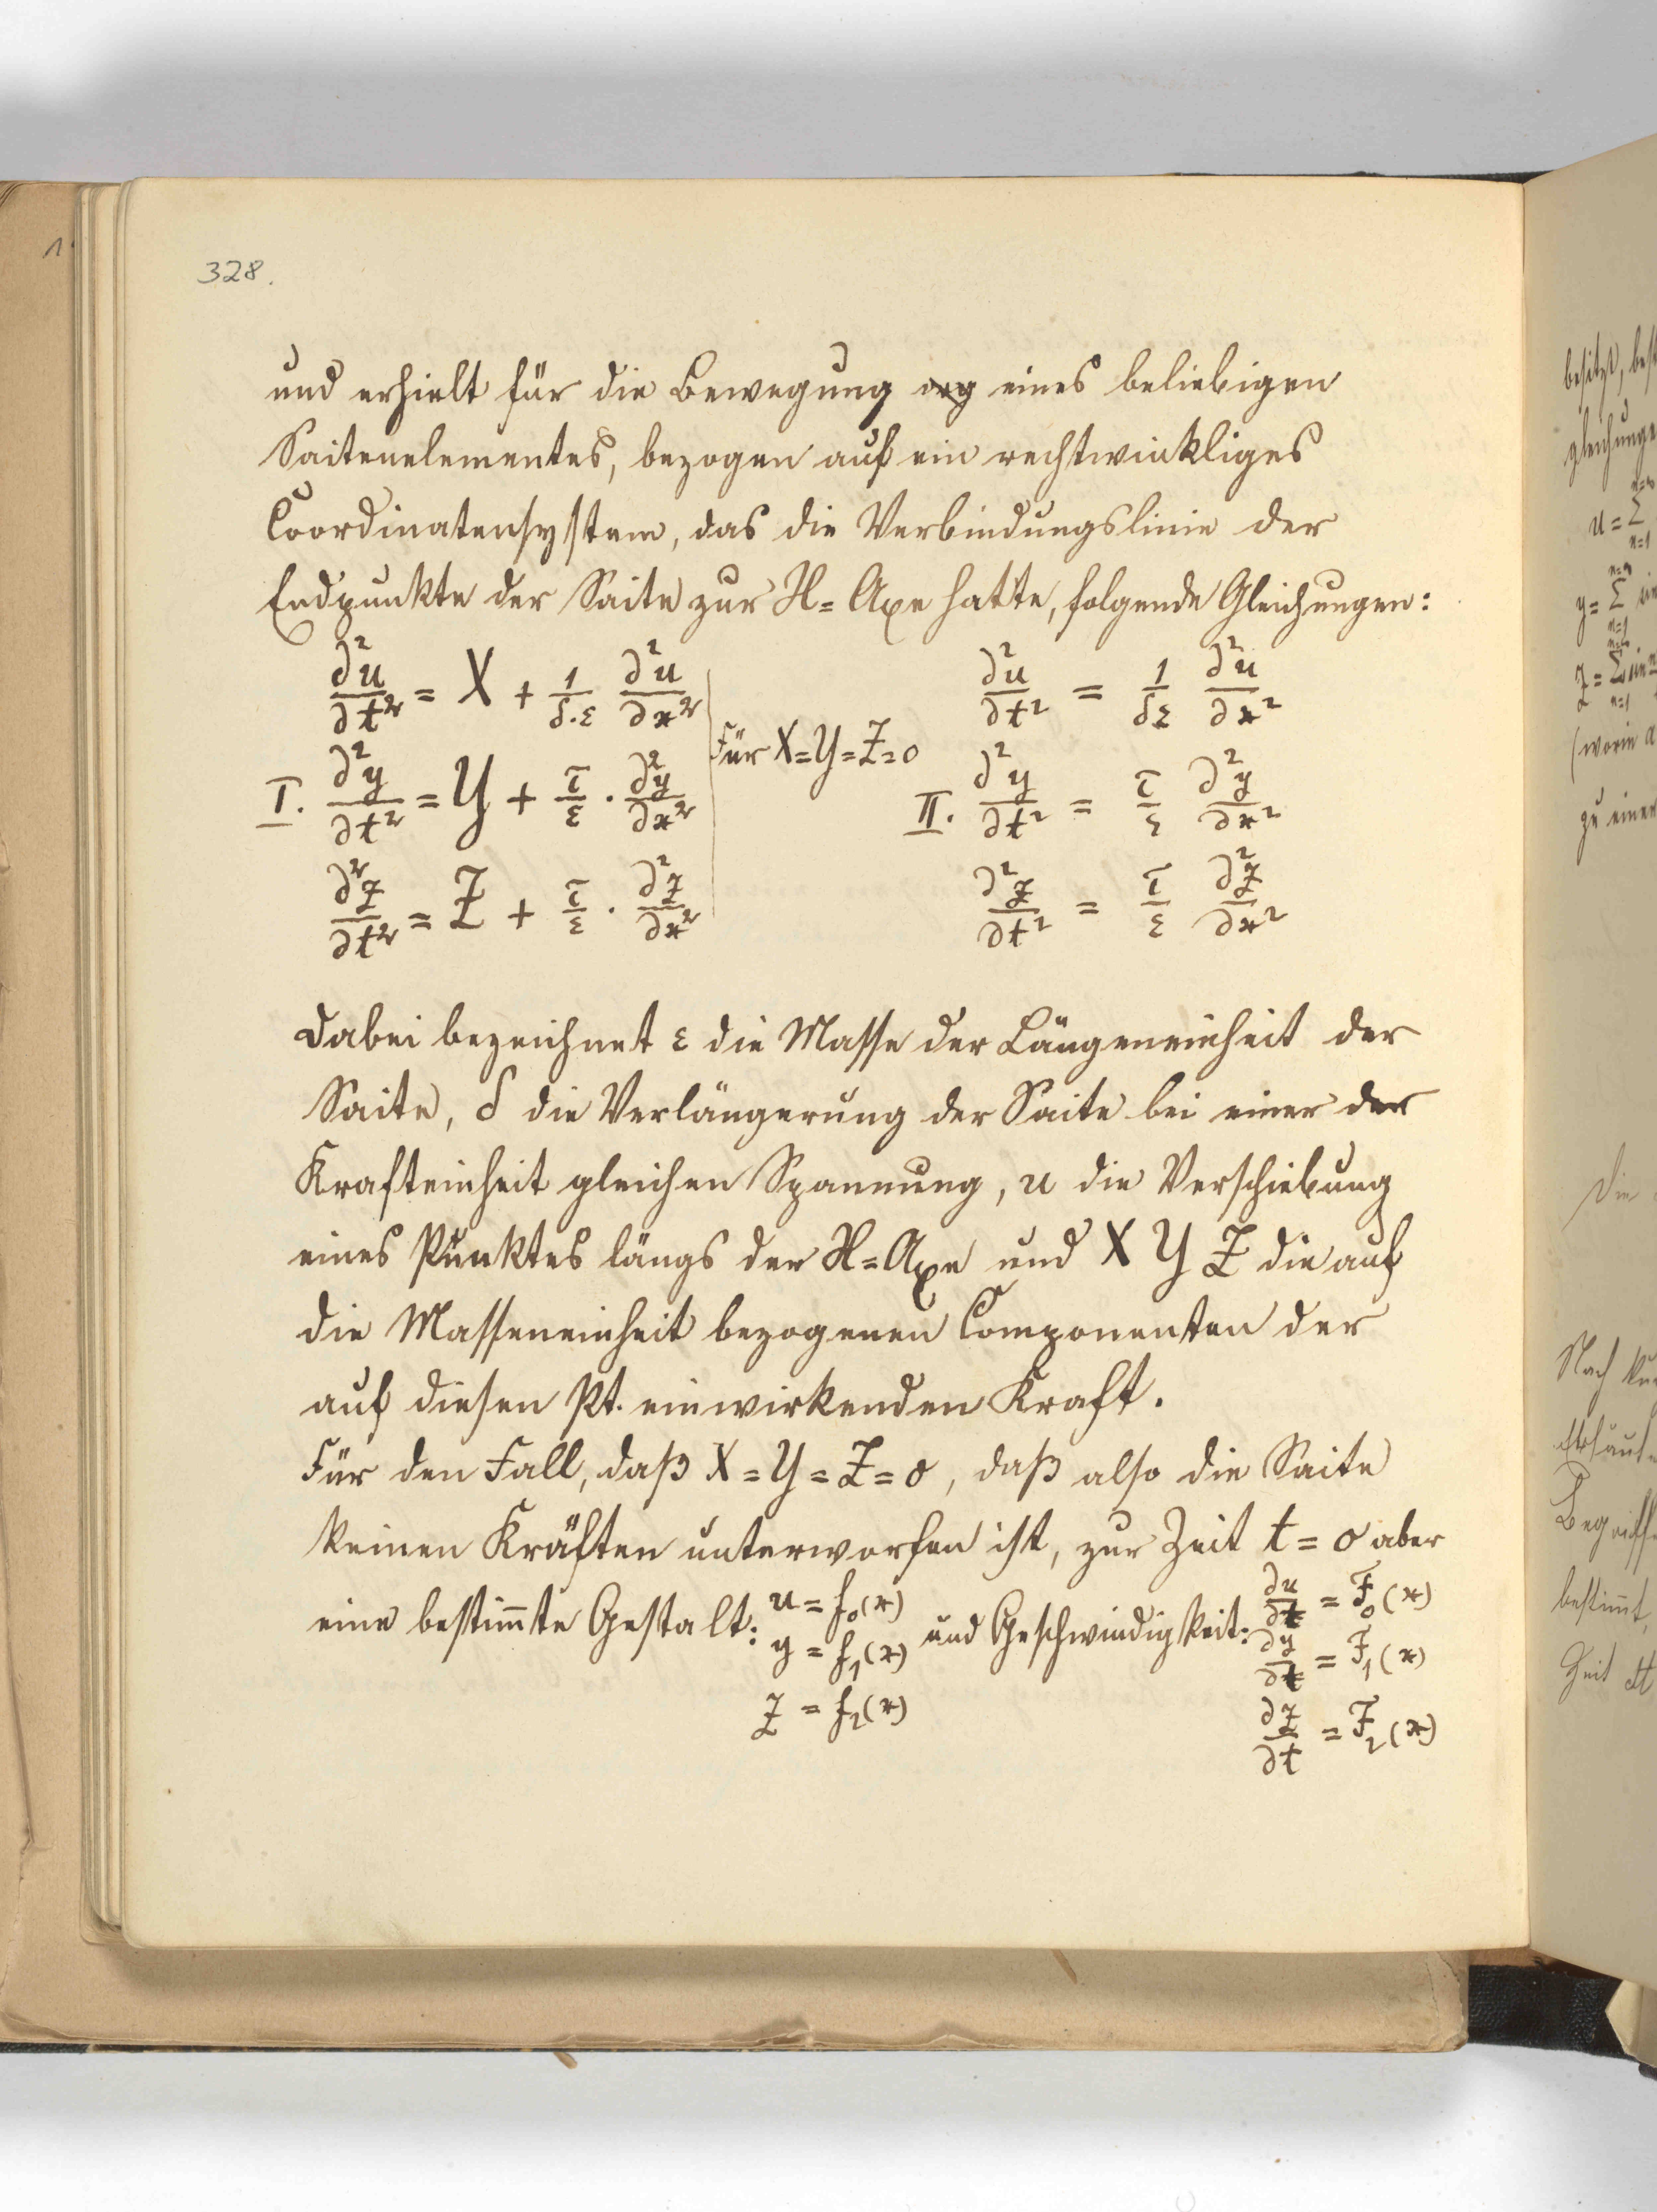 328.
und erhielt für die Bewegung eines beliebigen
Saitenelementes, bezogen auf ein rechtwinkliges
Coordinatensystem, das die Verbindungslinie der
Endpunkte der Saite zur X-Axe hatte, folgende Gleichungen:
∂²u/∂t² = X + 1/δ·ε ∂²u/∂x² ∂²u/∂t² = 1/δε ∂²u/∂x²
Für X=Y=Z=0
I. ∂²y/∂t² = Y + τ/ε · ∂²y/∂x² II. ∂²y/∂t² = τ/ε ∂²y/∂x²
∂²z/∂t² = Z + τ/ε · ∂²z/∂x² ∂²z/∂t² = τ/ε ∂²z/∂x²
Dabei bezeichnet ε die Masse der Längeneinheit der
Saite, δ die Verlängerung der Saite bei einer der
Krafteinheit gleichen Spannung, u die Verschiebung
eines Punktes längs der X-Axe und X Y Z die auf
die Masseneinheit bezogenen Componenten der
auf diesen Pt. einwirkenden Kraft.
Für den Fall, daß X=Y=Z=0, daß also die Saite
keinen Kräften unterworfen ist, zur Zeit t=0 aber
eine bestim̅te Gestalt: u = f₀(x) und Geschwindigkeit: ∂u/∂t = F₀(x)
y = f₁(x) ∂y/∂t = F₁(x)
z = f₂(x) ∂z/∂t = F₂(x)
besitzt,
u = Σ
y = Σ
z = Σ
(worin
zu einer
Die
Nach
bestim̅t,
Zeit dt